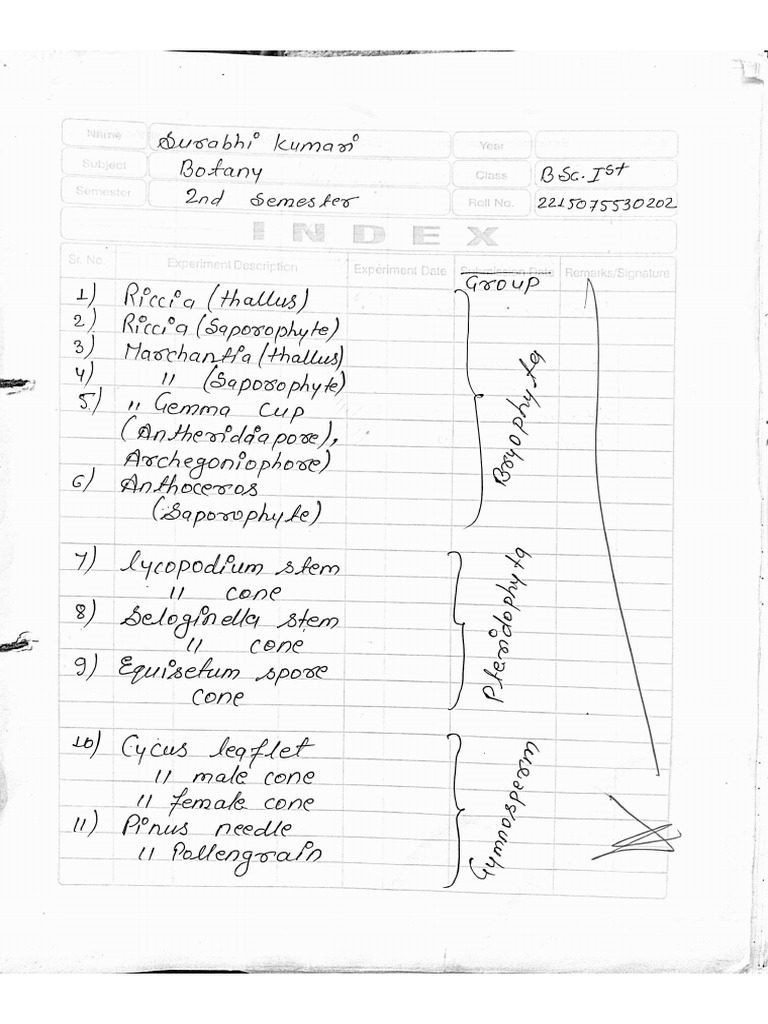 Name Surabhi Kumari Year
Subject Botany Class B.Sc. Ist
Semester 2nd Semester Roll No. 2215075530202
INDEX
Sr. No. Experiment Description Experiment Date Submission Date Remarks/Signature
Group
1) Riccia (thallus)
2) Riccia (Saporophyte)
3) Marchantia (thallus)
4) " (Saporophyte)
5.) " Gemma cup
(Antheridiapore),
Archegoniophore)
6) Anthoceros
(Saporophyte)
Bryophyta
7) lycopodium stem
" cone
8) Seloginella stem
" cone
9) Equisetum spore
cone
Pteridophyta
10) Cycus leaflet
" male cone
" female cone
11) Pinus needle
" Pollengrain
Gymnosperm